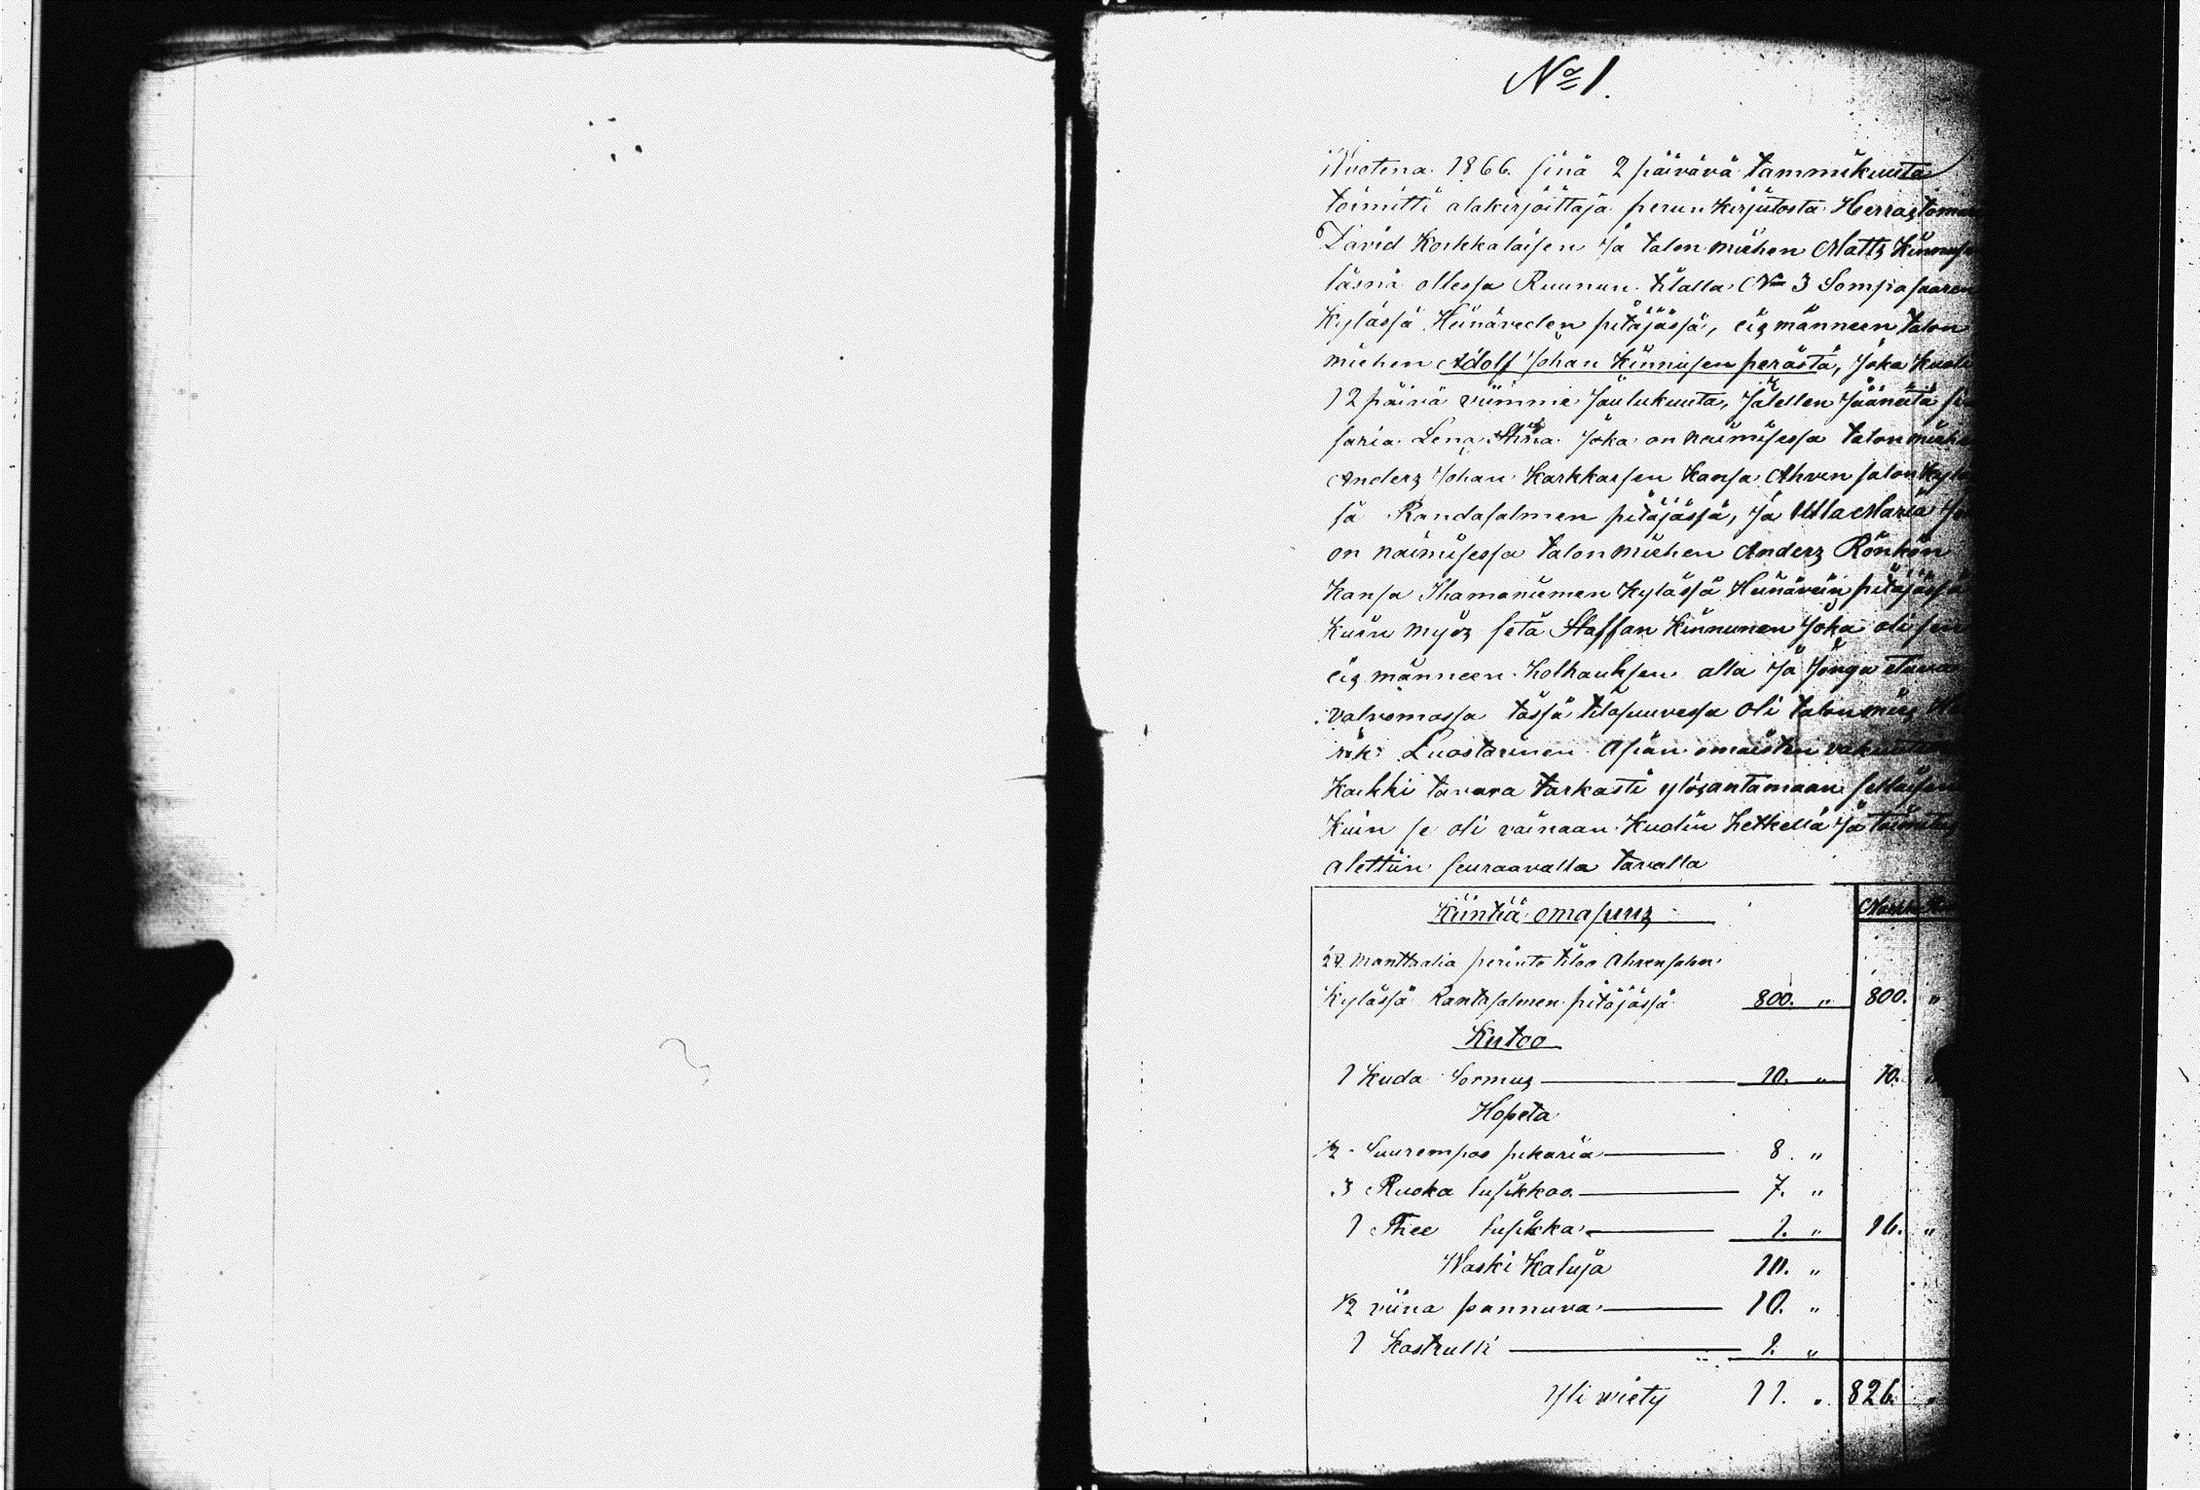 No 1.
Wuotena 1866. sinä 2 päivävä tammikuuta
toimitti alakirjoittaja perun kirjutosta Herrastoman
David Korhkalaisen ja talon miehen Matts Kinnusen
läsnä ollessa Ruunun tilalla No 3 Sompasaaren
Kylässä Heinäveden pitäjässä, eis männeen talon
miehen Adolf Johan Kinnusen perästä, joka kuoli
12 päivä viimme Joulukuuta, jälellen jääneitä
saria Lena Stina joka on naimisessa talon miehen
Anders Johan Karkkaisen kansa Ahvensalon kylä
sä Randasalmen pitäjässä, ja Ulla Maria
on naimisessa talon miehen Anders Rönkön
kansa Ihamaniemen kylässä Heinävein pitäjässä
kuin myös setä Staffan Kinnunen joka oli sen
eis männeen holhauksen alla ja jonga etuva
valvomassa tässä tilasuuvessa oli talon mies
rik Luostarinen Asian omaisten
kaikki tavara tarkasti ylösantamaan sellaisen
kuin se oli vainaan kuolin hetkellä ja
alettiin seuraavalla tavalla
Kiintiä omasuus
manttalia perinto tiloo Ahvensalon
kylässä Rantasalmen pitäjässä 800. „ 800. „
Kutoo
1 Kuda Sormus 10. „ 10. „
Hopeta
2 Suurempoo pikaria 8. „
3 Ruoka lusikkoo 7. „
1 Thee lusikka 1. „ 16. „
Waski Kaluja 10. „
1/2 viina pannuva 10. „
1 Kastrulli 1. „
Yli viety 11. „ 826. „